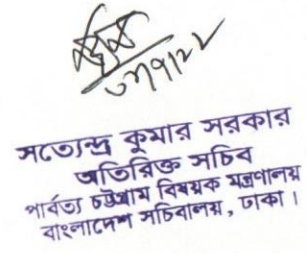 সত্যেন্দ্র কুমার সরকার
অতিরিক্ত সচিব
পার্বত্য চট্টগ্রাম বিষয়ক মন্ত্রণালয়
বাংলাদেশ সচিবালয়, ঢাকা।